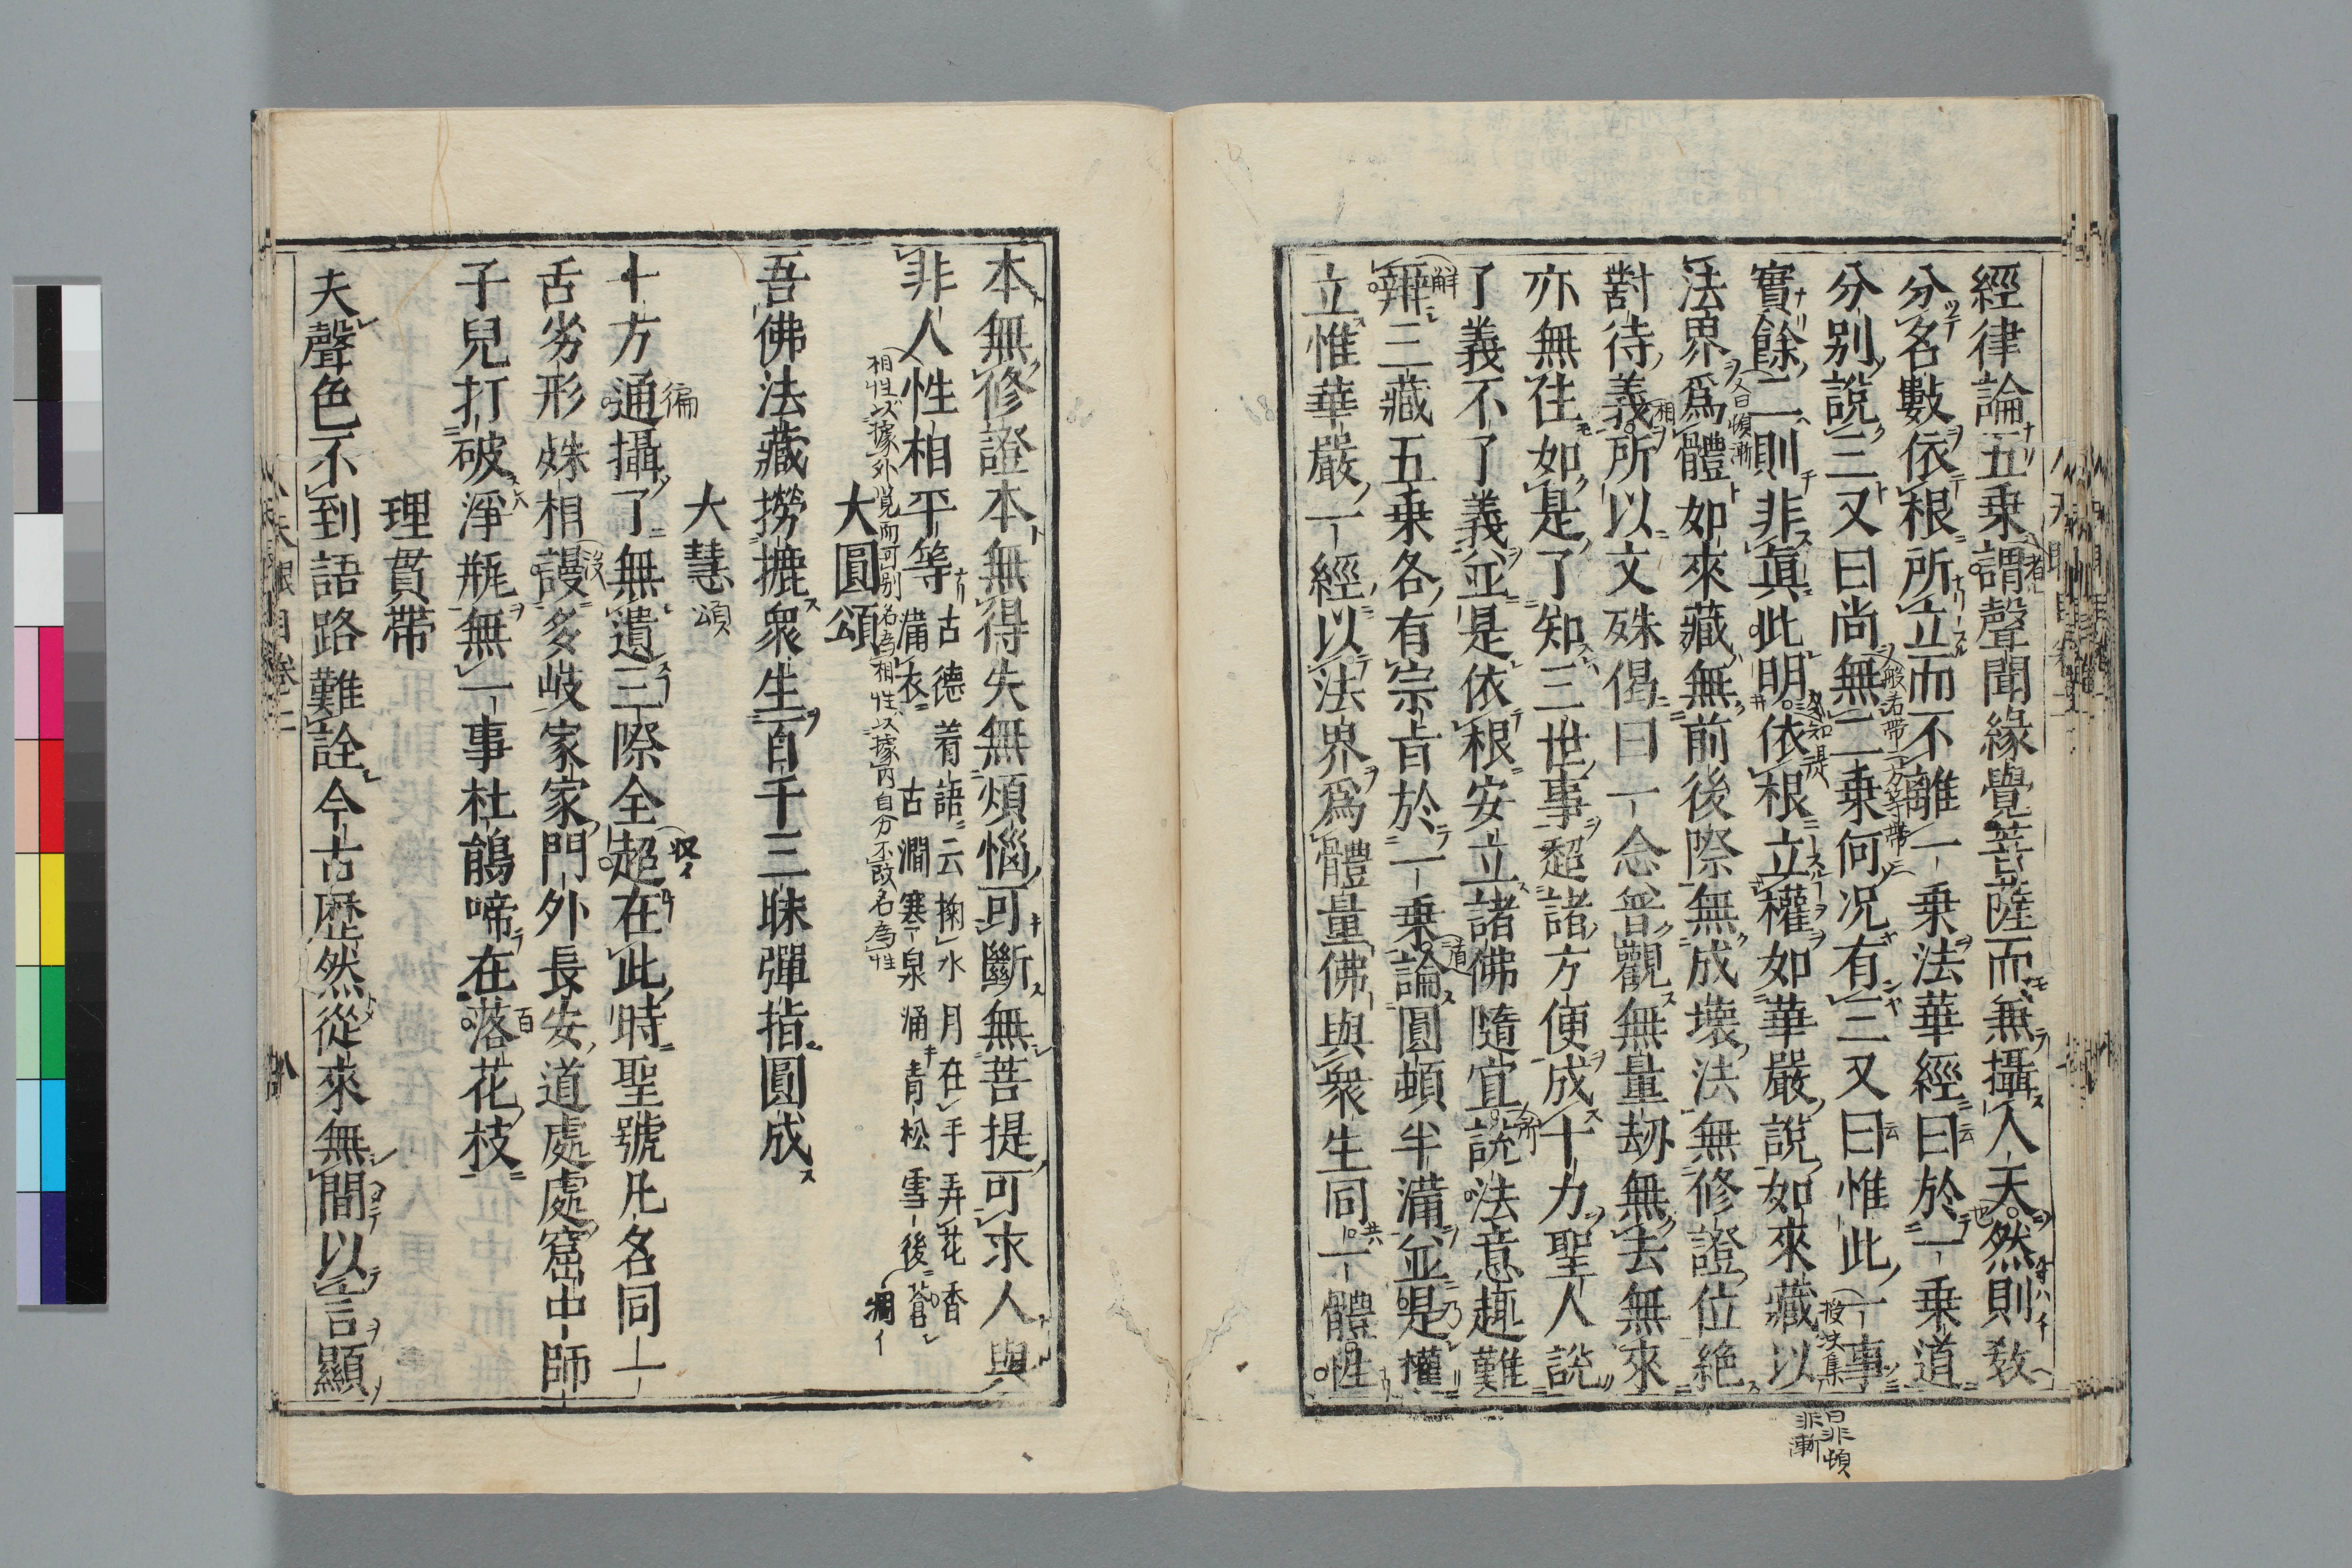 經律論五乗謂聲聞緣覺菩薩而無攝人天然則敎
分名數依根所立而不離一乗法華經曰於一乗道
分別說三又曰尚無二乗何况有三又曰惟此一事
實餘二則非眞此明依根立權如華嚴說如來藏以
法界爲體如來藏無前後際無成壞法無修證位絶
對待義所以文殊偈曰一念普觀無量劫無去無來
亦無住如是了知三世事超諸方便成十力聖人說
了義不了義並是依根安立諸佛隨宜說法意趣難
辨三藏五乗各有宗旨於一乗論圓頓半滿並是權
立惟華嚴一經以法界爲體量佛與衆生同一體性
本無修證本無得失無煩惱可斷無菩提可求人與
非人性相平等
古德著語云掬水月在手弄花香
滿衣古澗寒泉涌青松雪後蒼
大圓頌
吾佛法藏撈摝衆生百千三昧彈指圓成
大慧頌
十方通攝了無遺三際全超在此時聖號凡名同一
舌劣形殊相謾多岐家家門外長安道處處窟中師
子兒打破淨瓶無一事杜鵑啼在落花枝
理貫帶
夫聲色不到語路難詮今古歴然從來無間以言顯